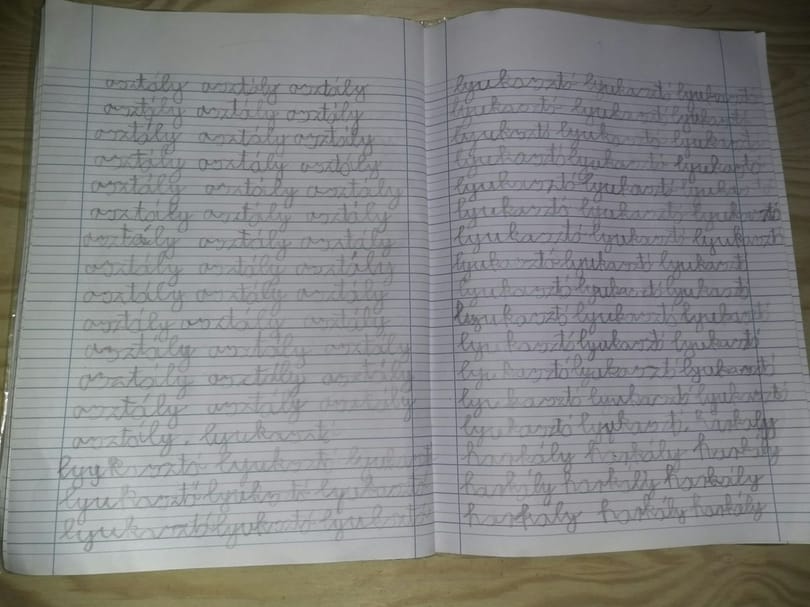 osztály osztály osztály
osztály osztály osztály
osztály osztály osztály
osztály osztály osztály
osztály osztály osztály
osztály osztály osztály
osztály osztály osztály
osztály osztály osztály
osztály osztály osztály
osztály osztály osztály
osztály osztály osztály
osztály osztály osztály
osztály osztály osztály
osztály, lyukasztó
lyukasztó lyukasztó lyukasztó
lyukasztó lyukasztó lyukasztó
lyukasztó lyuksztó lyuksztó
lyukasztó lyukasztó lyukasztó
lyukasztó lyukasztó lyukasztó
lyukasztó lyukasztó lyukasztó
lyukasztó lyukasztó lyukasztó
lyukasztó lyukasztó lyukasztó
lyukasztó lyukasztó lyukasztó
lyukasztó lyukasztó lyukasztó
lyukasztó lyukasztó lyukasztó
lyukasztó lyukasztó lyukasztó
lyukasztó lyukasztó lyukasztó
lyukasztó lyukasztó lyukasztó
lyukasztó lyukasztó lyukasztó
lyukasztó lyukasztó lyukasztó
lyukasztó lyukasztó, harkály
harkály harkály harkály
harkály harkály harkály
harkály harkály harkály